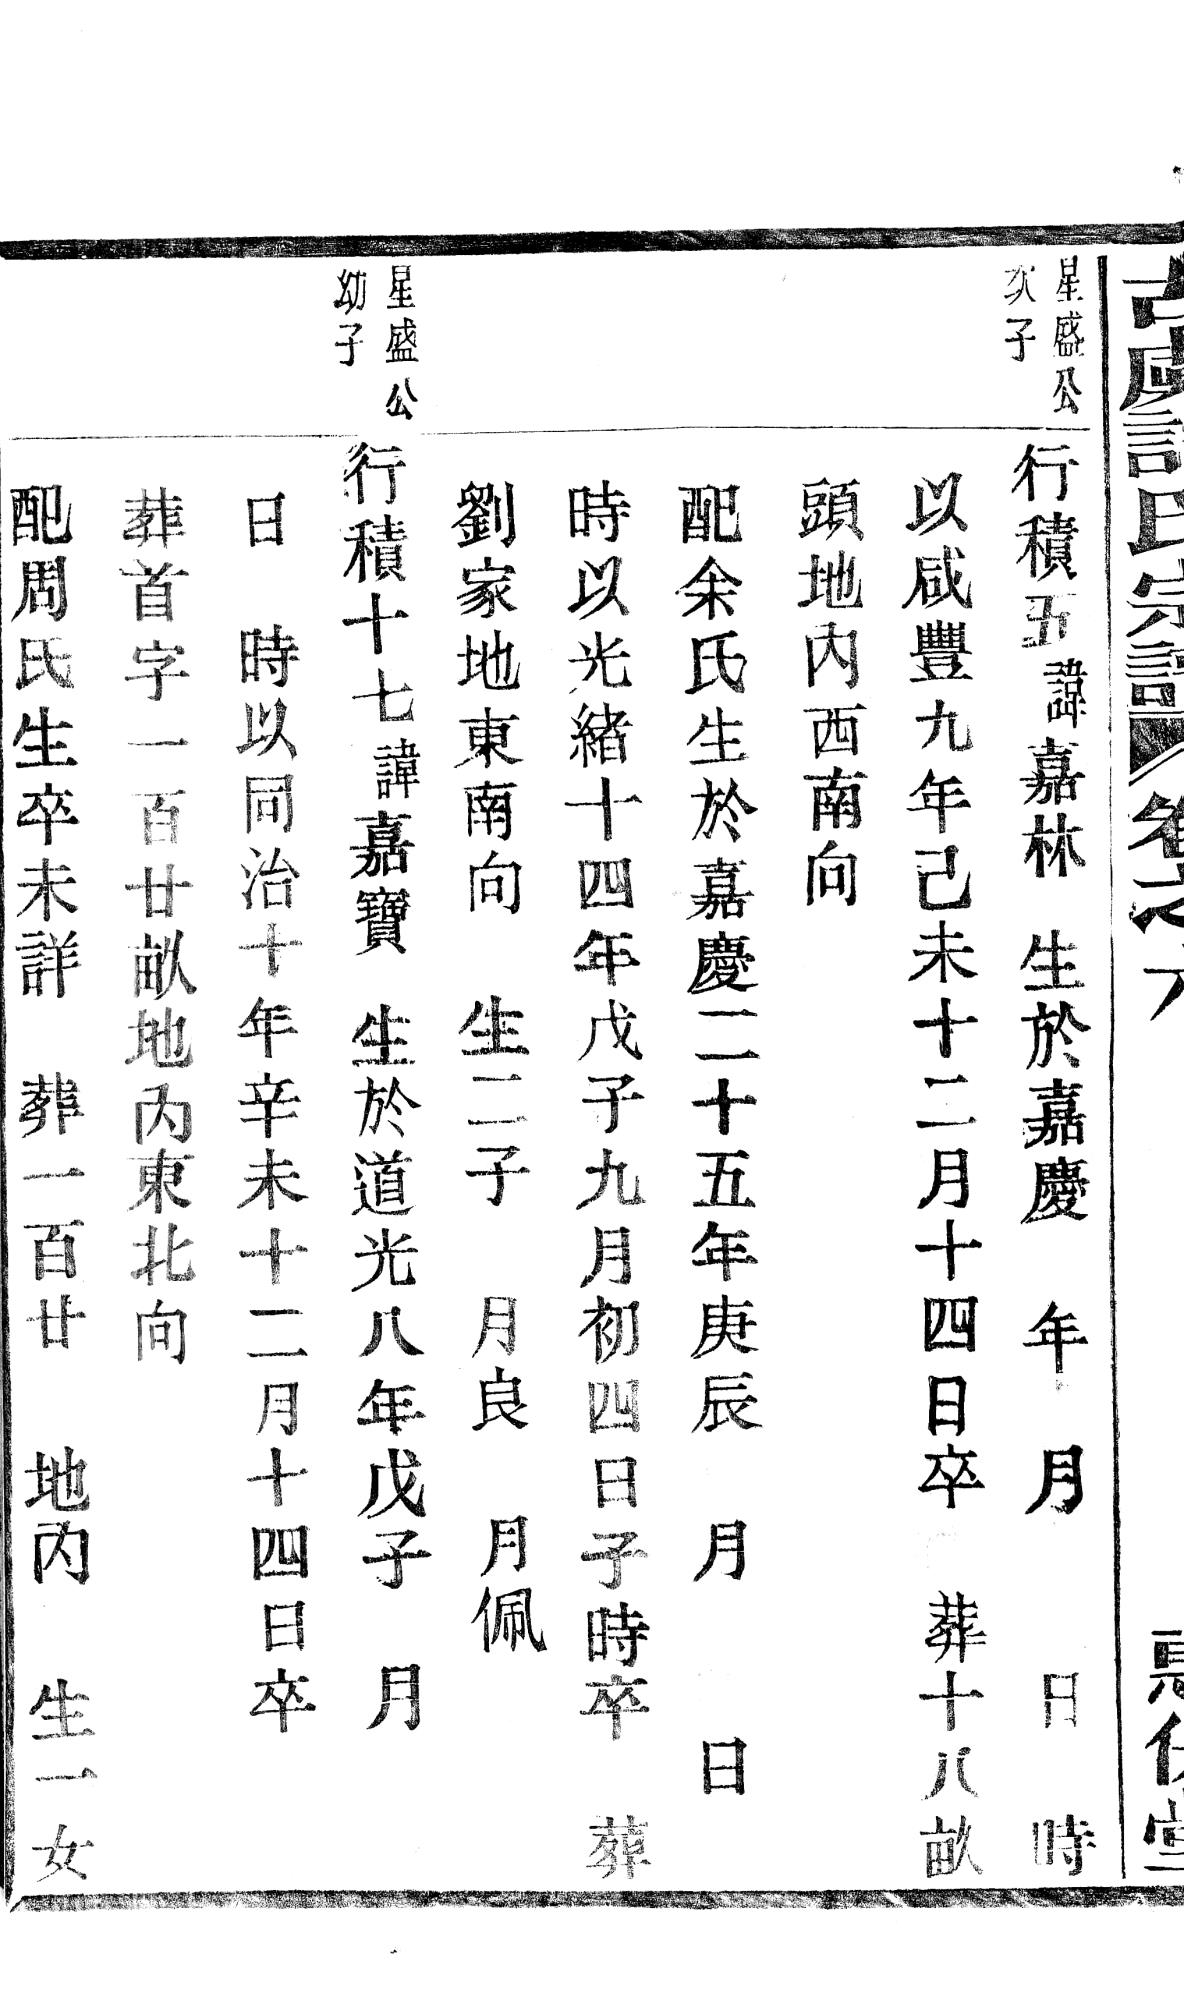 古虞許氏宗譜 卷之六
星盛公
次子
行積五 諱嘉林 生於嘉慶 年 月 日 時
以咸豐九年己未十二月十四日卒 葬十八畝
頭地內西南向
配余氏生於嘉慶二十五年庚辰 月 日
時以光緒十四年戊子九月初四日子時卒 葬
劉家地東南向 生二子 月良 月佩
星盛公
幼子
行積十七 諱嘉寶 生於道光八年戊子 月
日 時以同治十年辛未十二月十四日卒
葬首字一百廿畝地內東北向
配周氏生卒未詳 葬一百廿 地內 生一女